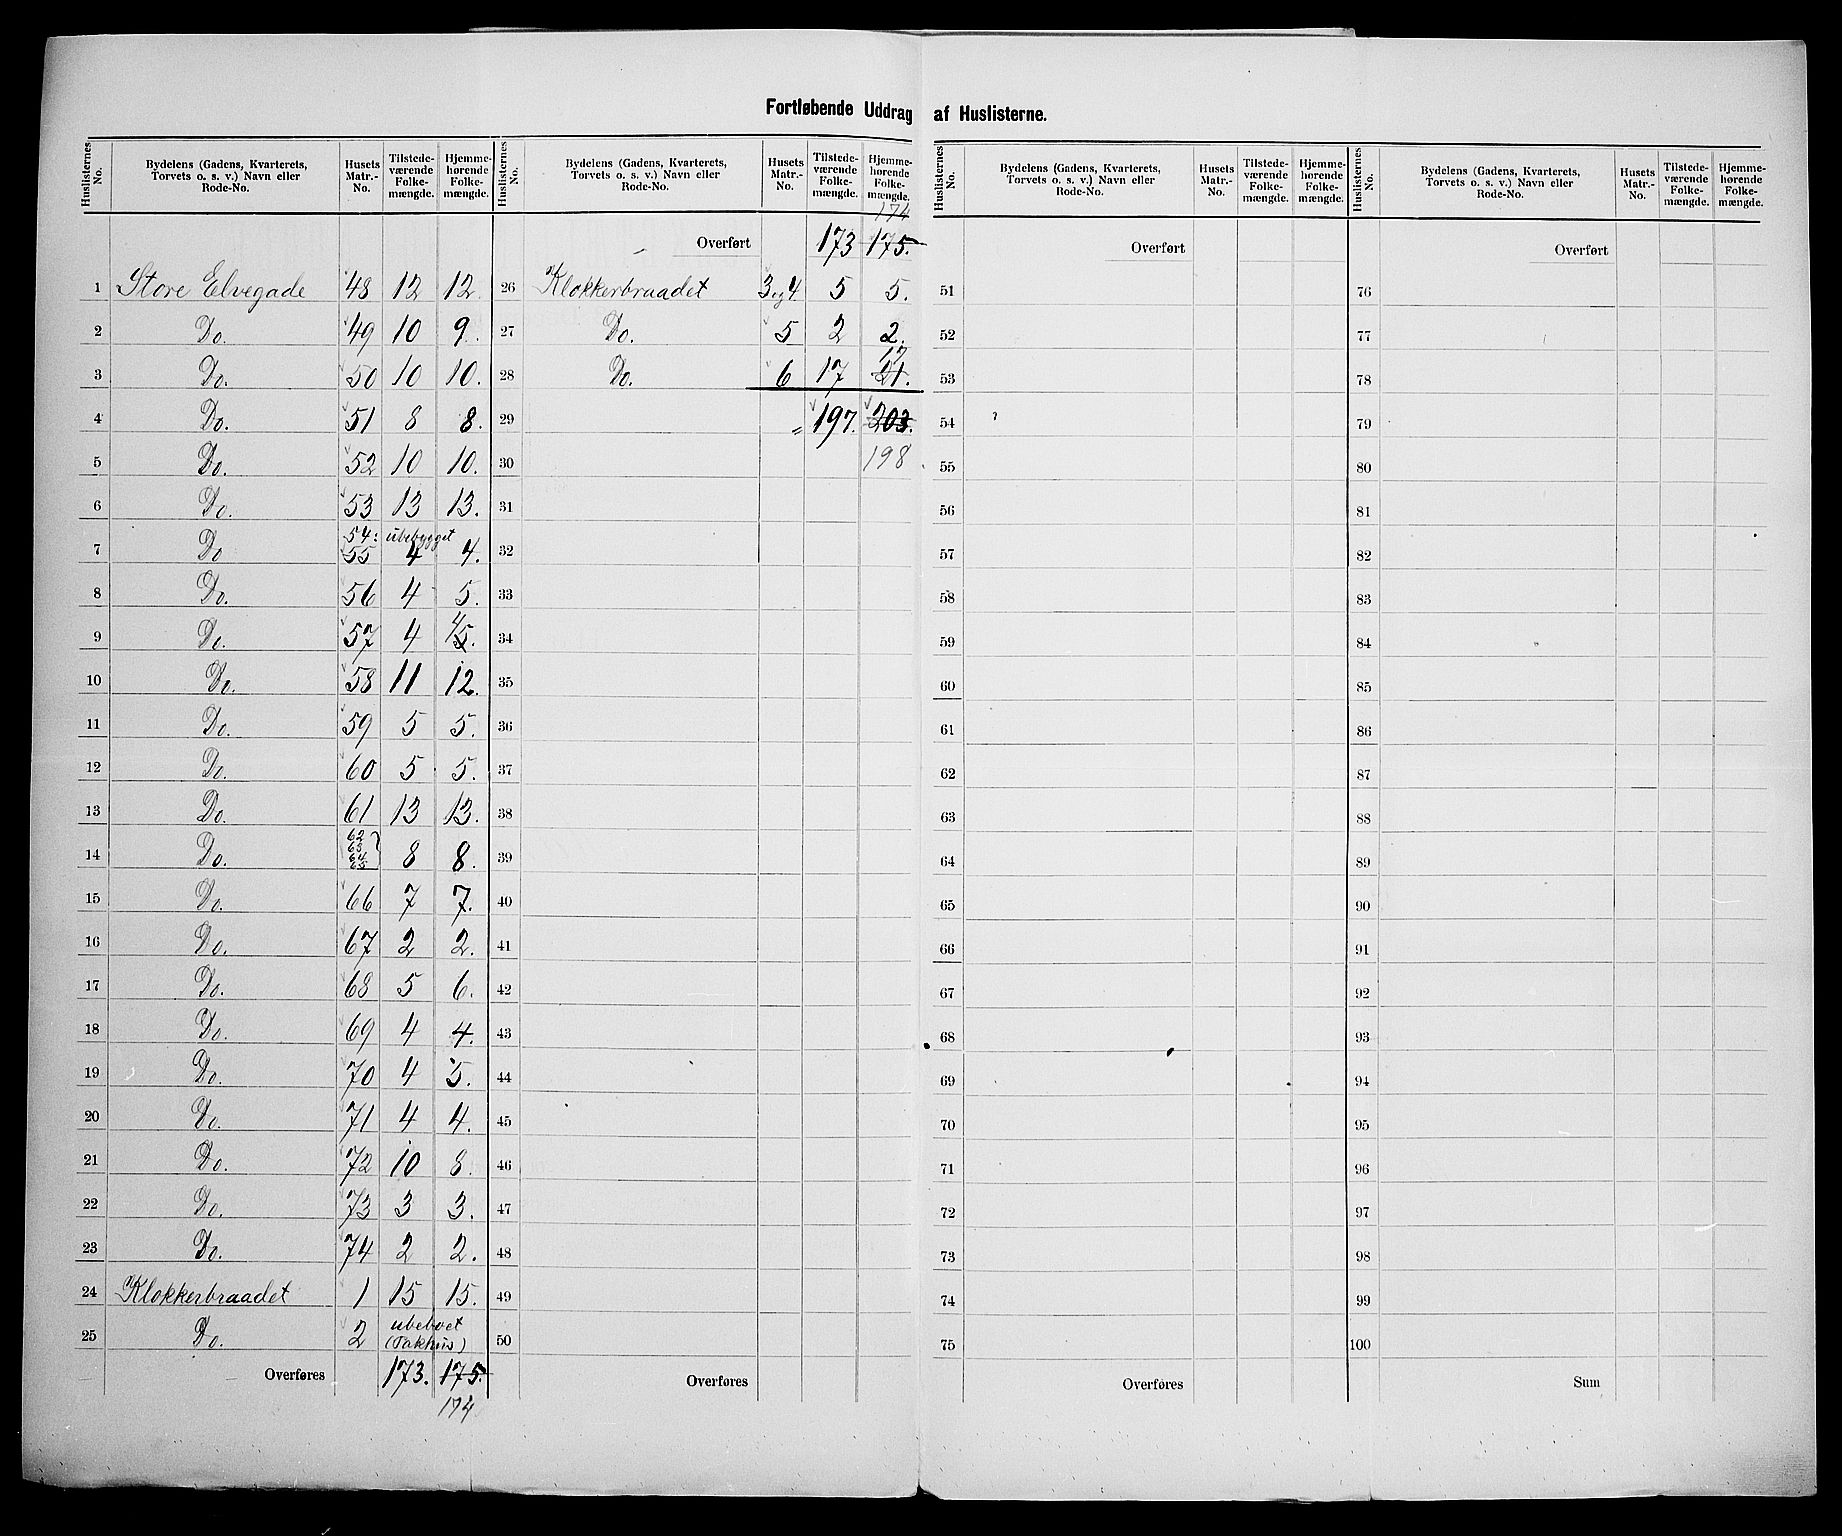 Fortløbende Uddrag af Huslisterne.
Huslisternes No. | Bydelens (Gadens, Kvarterets, Torvets o. s. v.) Navn eller Rode-No. | Husets Matr.-No. | Tilstedeværende Folkemængde. | Hjemmehørende Folkemængde.
1 Store Elvegade 48 12 12.
2 Do. 49 10 9.
3 Do. 50 10 10.
4 Do. 51 8 8.
5 Do. 52 10 10.
6 Do. 53 13 13.
54: ubebygget
7 Do 55 4 4.
8 Do. 56 4 5.
9 Do. 57 4 4 5.
10 Do. 58 11 12.
11 Do. 59 5 5.
12 Do. 60 5 5.
13 Do. 61 13 13.
14 Do. 62 63 64 65 } 8 8.
15 Do. 66 7 7.
16 Do. 67 2 2.
17 Do. 68 5 6.
18 Do. 69 4 4.
19 Do. 70 4 5.
20 Do. 71 4 4.
21 Do. 72 10 8.
22 Do. 73 3 3.
23 Do. 74 2 2.
24 Klokkerbraadet 1 15 15.
25 Do. 2 ubeboet (Pakhus)
Overføres 173. 175.
174
Huslisternes No. | Bydelens (Gadens, Kvarterets, Torvets o. s. v.) Navn eller Rode-No. | Husets Matr.-No. | Tilstedeværende Folkemængde. | Hjemmehørende Folkemængde.
174
Overført 173 175.
26 Klokkerbraadet 3 og 4 5 5.
27 Do. 5 2 2.
17
28 Do. 6 17 21.
29 " 197. 203.
30 198
31
32
33
34
35
36
37
38
39
40
41
42
43
44
45
46
47
48
49
50
Overføres
Huslisternes No. | Bydelens (Gadens, Kvarterets, Torvets o. s. v.) Navn eller Rode-No. | Husets Matr.-No. | Tilstedeværende Folkemængde. | Hjemmehørende Folkemængde.
Overført
51
52
53
54
55
56
57
58
59
60
61
62
63
64
65
66
67
68
69
70
71
72
73
74
75
Overføres
Huslisternes No. | Bydelens (Gadens, Kvarterets, Torvets o. s. v.) Navn eller Rode-No. | Husets Matr.-No. | Tilstedeværende Folkemængde. | Hjemmehørende Folkemængde.
Overført
76
77
78
79
80
81
82
83
84
85
86
87
88
89
90
91
92
93
94
95
96
97
98
99
100
Sum